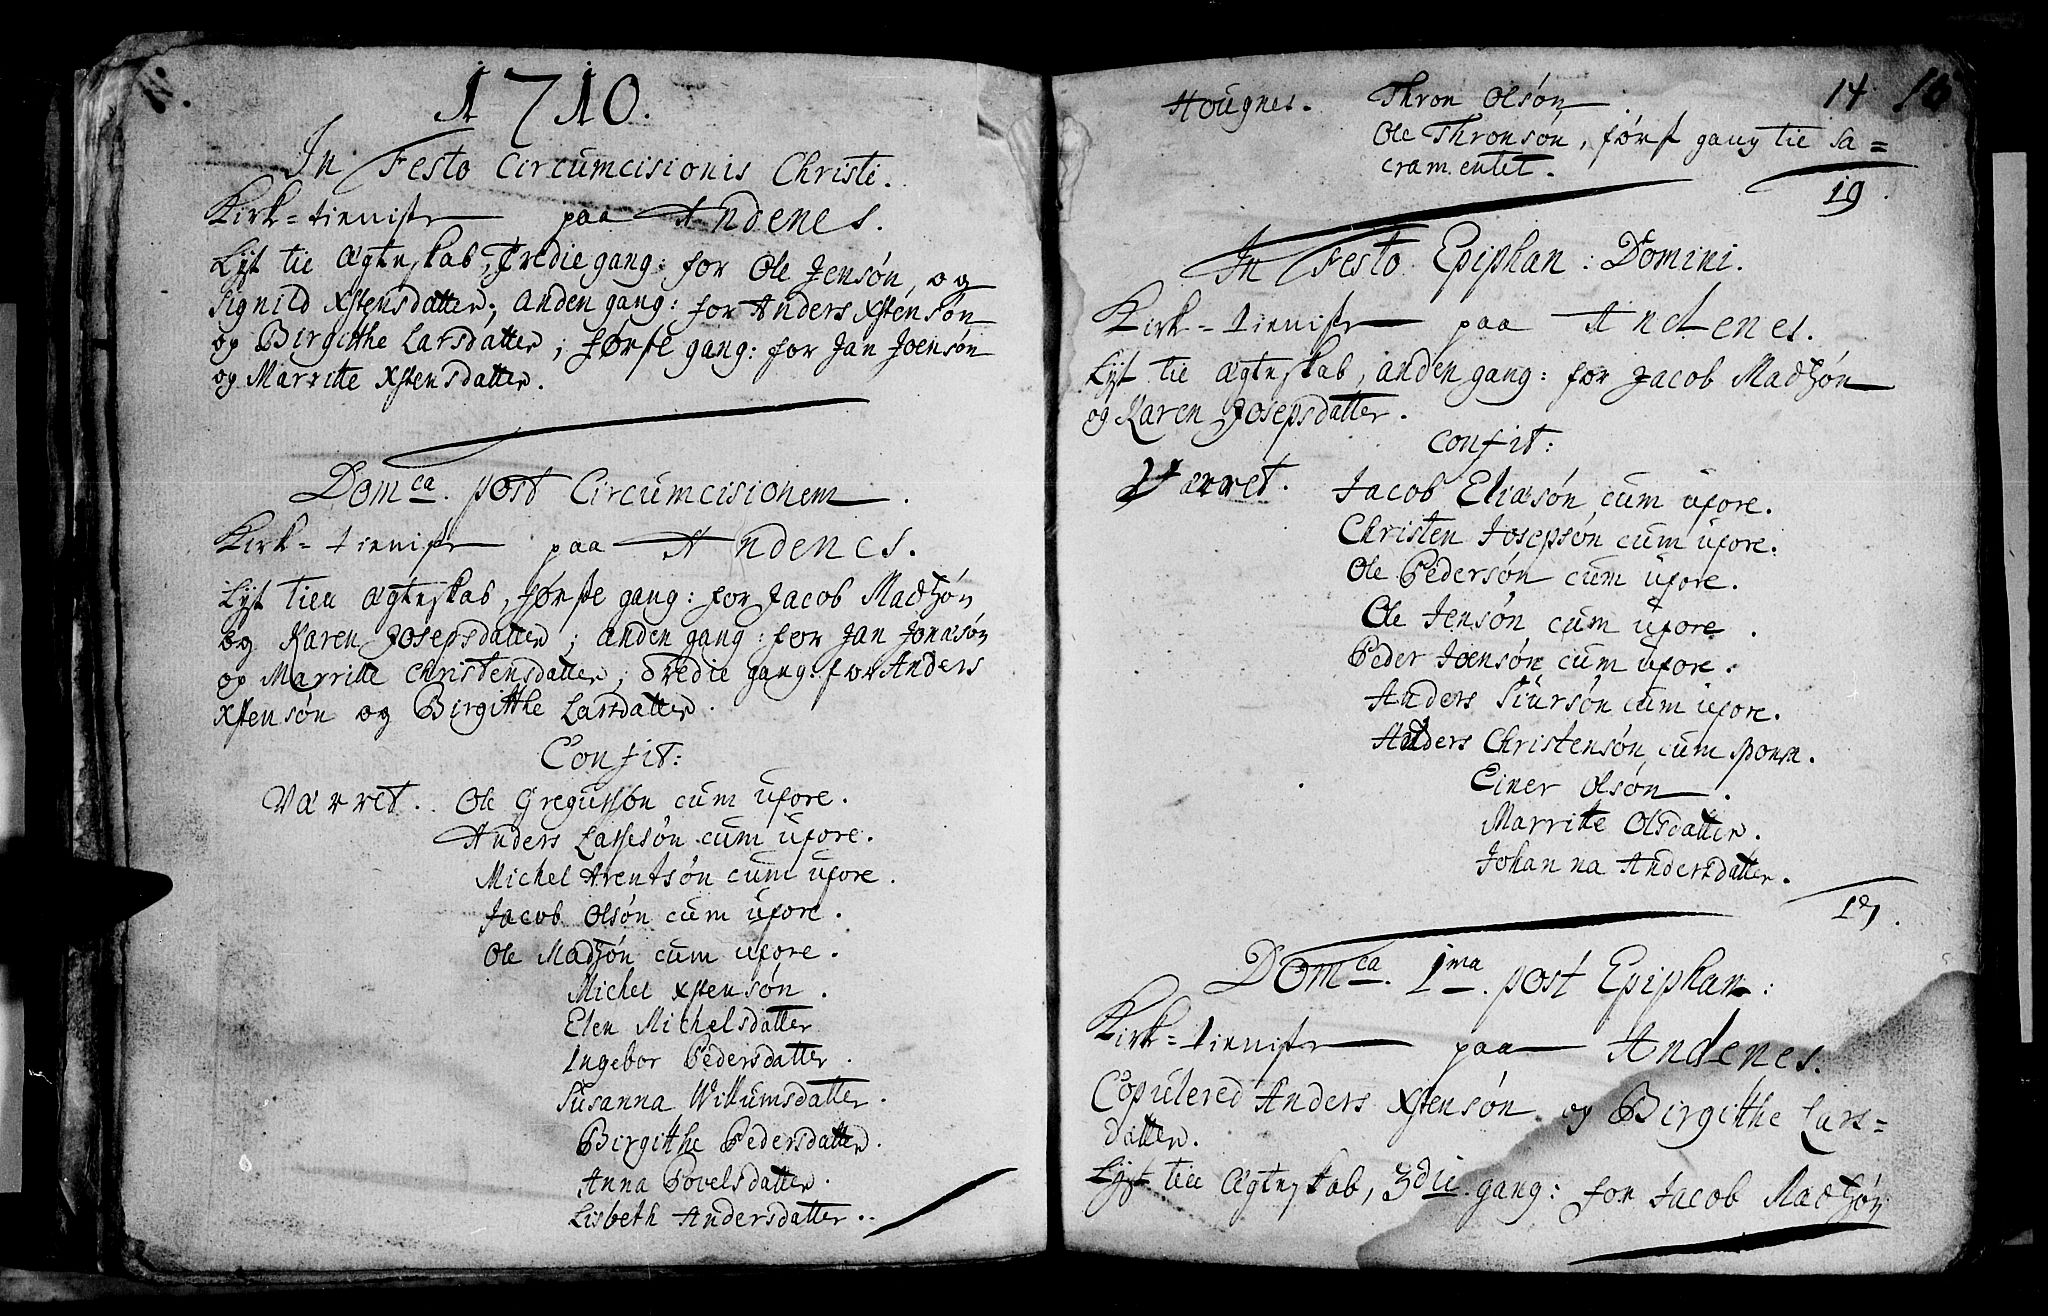 1710.
In Festo Circumcisionis Christi.
Kirk-tieniste paa Andenes.
Lyst til Ægteskab, Tredie gang: for Ole Jensøn, og
Signild Xstensdatter; anden gang: for Anders Xstensøn
og Birgitthe Larsdatter; første gang: for Jan Joensøn
og Marritte Xstensdatter.
Dom.ca post Circumcisionem.
Kirk-tieniste paa Andenes.
Lyst till Ægteskab, første gang: for Jacob Madtzøn
og Karen Josepsdatter; anden gang: for Jan Jonæsøn
og Marritte Christensdatter; Tredie gang: for Anders
Xstensøn og Birgitthe Larsdatter.
Confit:
Værret. Ole Gregussøn cum uxore.
Anders Lassesøn cum uxore.
Michel Arentsøn cum uxore.
Jacob Olsøn cum uxore.
Ole Madtzøn cum uxore.
Michel Xstensøn.
Elen Michelsdatter
Ingebor Pedersdatter.
Susanna Willumsdatter.
Birgitthe Pedersdatter.
Anna Povelsdatter.
Lisbeth Andersdatter.
14
Hougnes. Thron Olsøn.
Ole Thronsøn, først gang til Sa=
cramentet.
19.
In Festo Epiphan: Domini.
Kirk-tieniste paa Andenes.
Lyst til Ægteskab, anden gang: for Jacob Madtzøn
og Karen Josepsdatter.
Confit:
Værret. Jacob Eliæsøn cum uxore.
Christen Josepsøn cum uxore.
Ole Pedersøn cum uxore.
Ole Jensøn cum uxore.
Peder Joensøn cum uxore.
Anders Siursøn cum uxore.
Anders Christensøn cum sponsa.
Einer Olsøn.
Marritte Olsdatter.
Johanna Andersdatter.
17.
Dom.ca 1.ma post Epiphan:
Kirk-tieniste paa Andenes.
Copulered Anders Xstensøn og Birgitthe Lars=
datter.
Lyst till Ægteskab, 3die gang: for Jacob Madtzøn